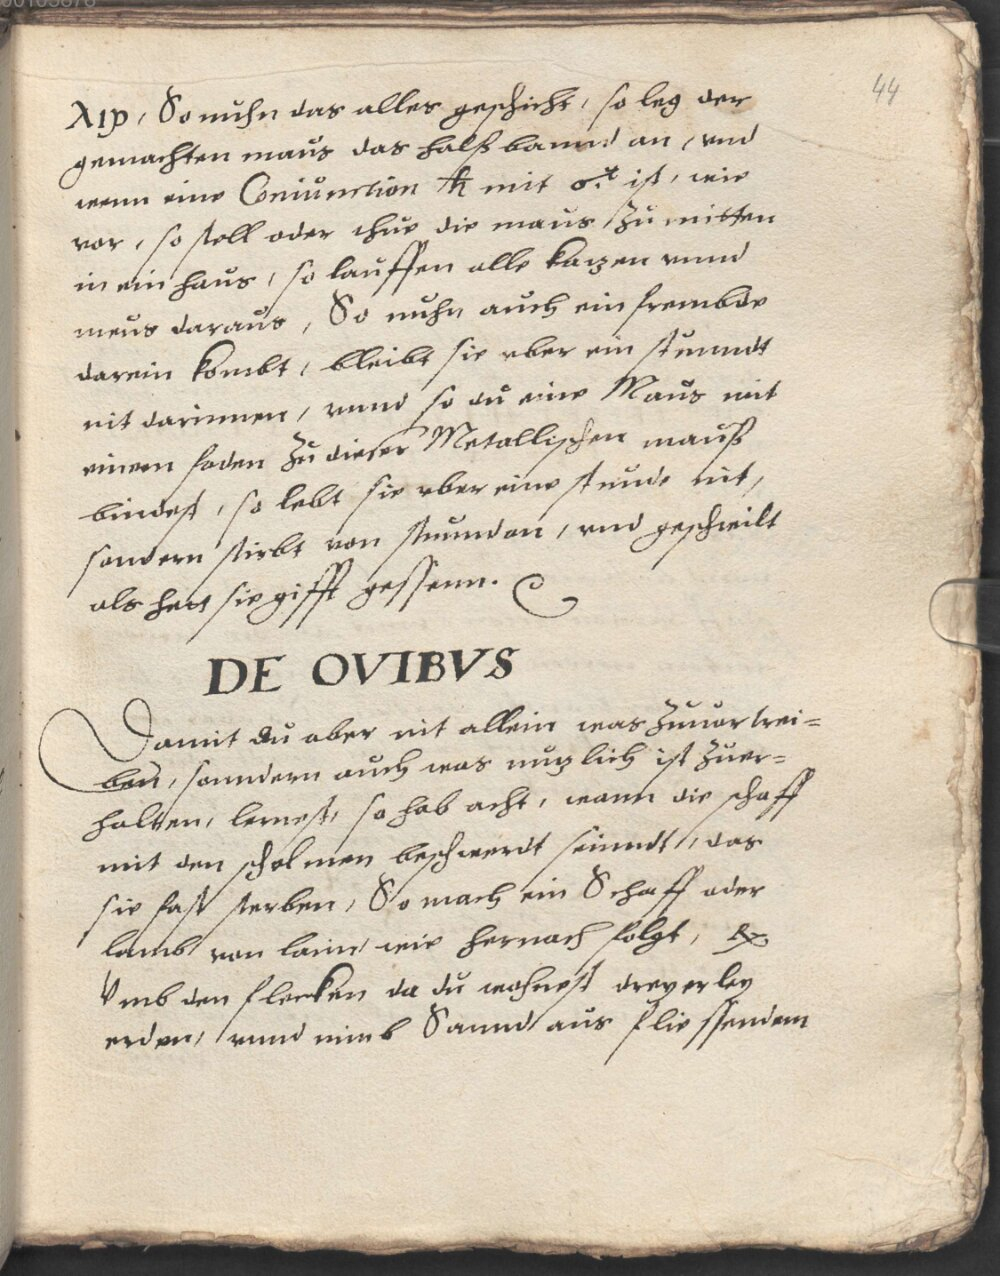 00105878
44
λιρ, So nuhn das alles geschicht, so leg der
gemachten maus das halßbannd an, vnd
wenn eine Coniunction ♄ mit ♂ ist, wie
vor, so stell oder thue die maus zu mitten
in ein haus, so lauffen alle kaczen vnnd
meus daraus, So nuhn auch ein frembde
darein kombt, bleibt sie vber ein stunndt
nit darinnen, vnnd so du eine Maus mit
einem faden zu dieser Metallischen mauß
bindest, so lebt sie vber eine stunde nit,
sondern stirbt von stunndan, vnd geschwilt
als hett sie gifft gessenn.
DE OVIBVS
Damit du aber nit allein was zuuortrei=
ben, sonndern auch was nuczlich ist zuer=
halten, lernest, so hab acht, wann die schaff
mit den schelmen beschwerdt seinndt, das
sie fast sterben, So mach ein Schaff oder
lamb von laim wie hernach folgt, ℞
Vmb den flecken da du wohnest dreyerley
erden, vnnd nimb Sannd aus fliessendem